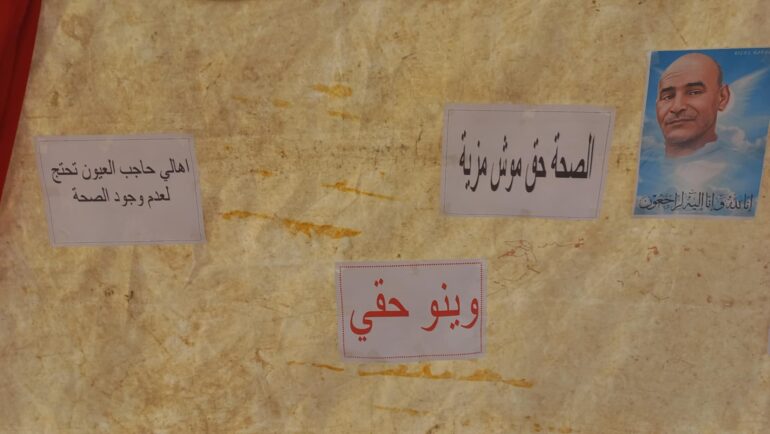 اهالي حاجب العيون تحتج
لعدم وجود الصحة
الصحة حق موش مزية
وينو حقي
انا لله وانا اليه راجعون